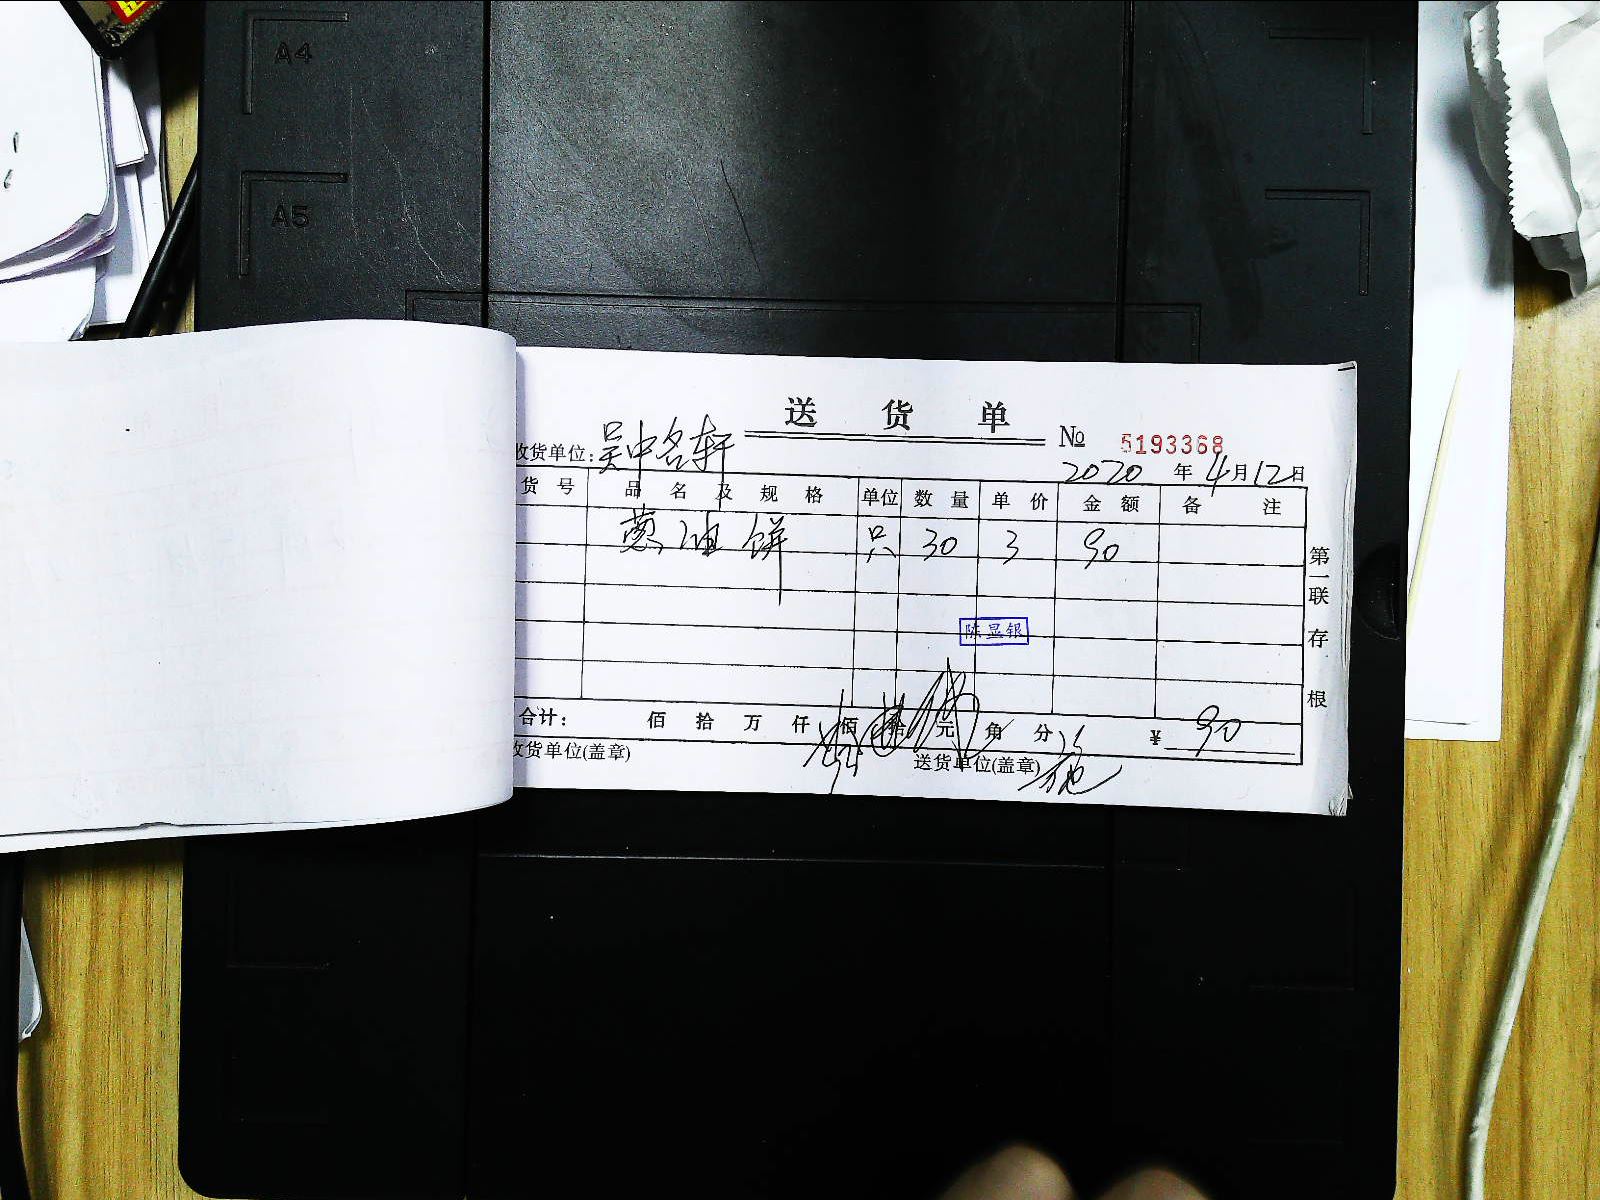 A4
A5
送 货 单
№ 5193368
收货单位:吴中名轩
2020 年 4 月 12 日
货 号 品 名 及 规 格 单位 数 量 单 价 金 额 备 注
葱油饼 只 30 3 90
陈显银
合计: 佰 拾 万 仟 佰 拾 元 角 分 ¥ 90
收货单位(盖章) 送货单位(盖章)
第一联 存根